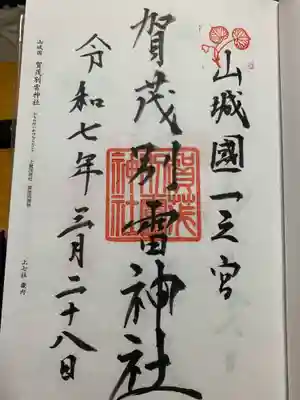 山城國一之宮
賀茂別雷神社
賀茂別雷神社
令和七年三月二十八日
山城国 賀茂別雷神社